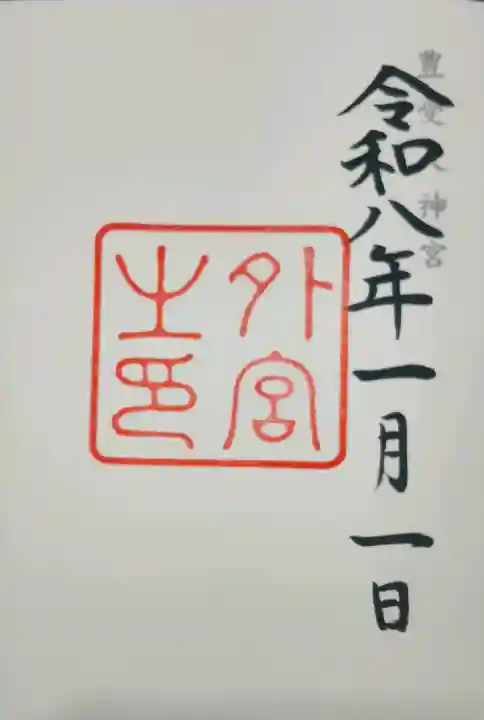 豊受大神宮
令和八年一月一日
外宮
之印